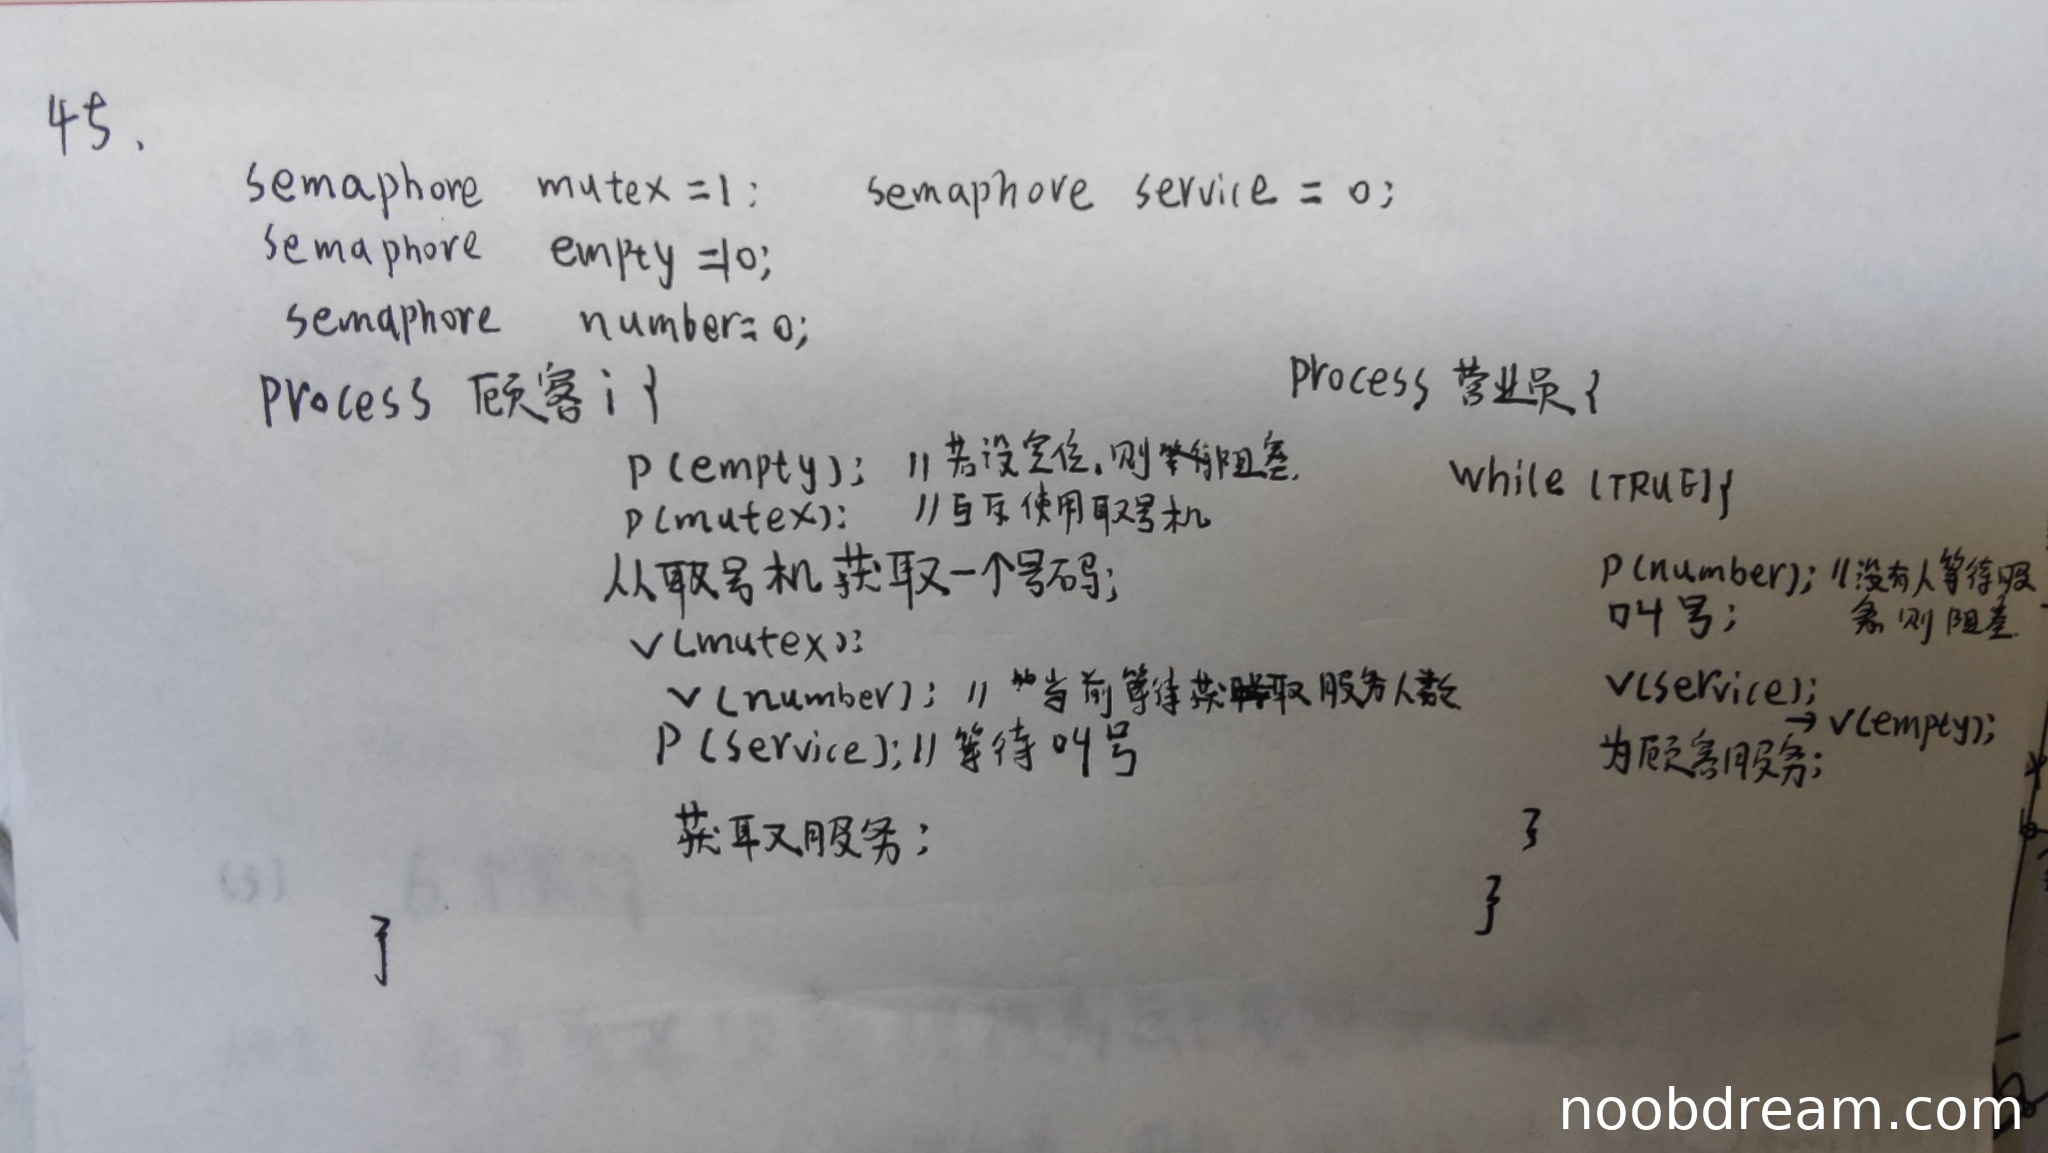 45.
semaphore mutex =1; semaphore service = 0;
semaphore empty =10;
semaphore number= 0;
process 顾客 i {
P(empty); //若没空位,则阻塞.
P(mutex); //互斥使用取号机
从取号机获取一个号码;
V(mutex);
V(number); //当前等待获取服务人数
P(service); //等待叫号
获取服务;
}
process 营业员 {
while (TRUE){
P(number); //没有人等待服
叫号; 务则阻塞
V(service);
→ V(empty);
为顾客服务;
}
}
noobdream.com